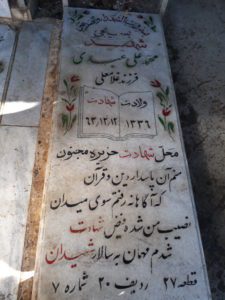 بسیجی
شهید
محمد علی عبدی
فرزند غلامعلی
ولادت شهادت
۱۳۳۶ ۶۳,۱۲,۱۲
محل شهادت جزیره مجنون
منم آن پاسدار دین و قرآن
که آگاهانه رفتم سوی میدان
نصیب من شده فیض شهادت
شدم مهمان به سالار شهیدان
قطعه ۲۷ ردیف ۲۰ شماره ۷